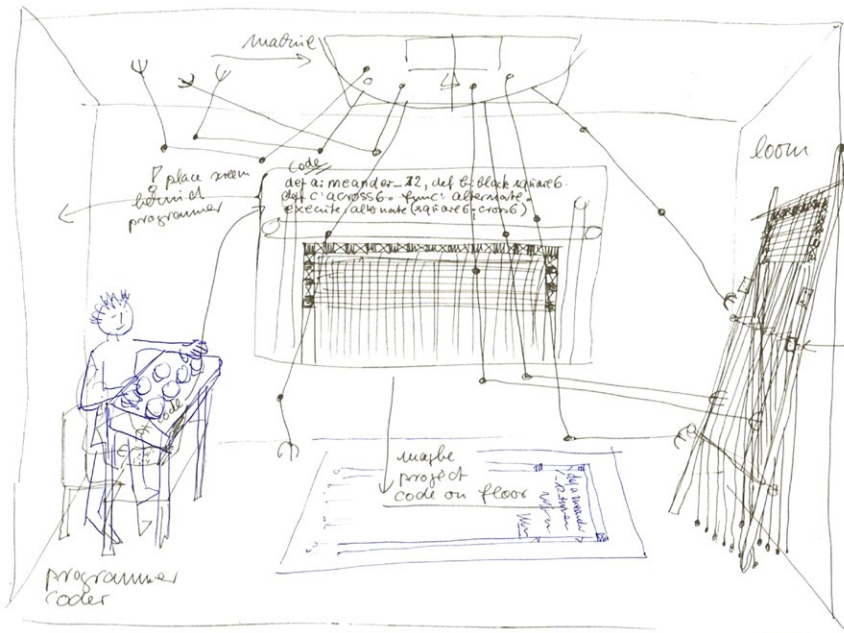 machine
loom
! place screen
behind
programmer
code
def a: meander_72, def b: block square6.
def c: across6. func: alternate.
execute: alternate (square6; cross6)
maybe
project
code on floor
def a meander
code
programmer
coder